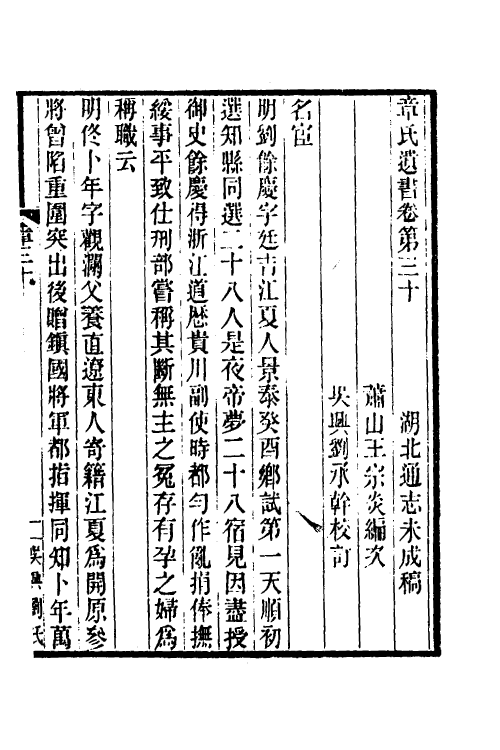 章氏遺書卷第三十 湖北通志未成稿
蕭山王宗炎編次
吳興劉承幹校訂
名宦
明劉餘慶字廷吉江夏人景泰癸酉鄉試第一天順初
選知縣同選二十八人是夜帝夢二十八宿見因盡授
御史餘慶得浙江道歷貴川副使時都勻作亂捐俸撫
綏事平致仕刑部嘗稱其斷無主之冤存有孕之婦爲
稱職云
明佟卜年字觀瀾父養直遼東人寄籍江夏爲開原參
將曾陷重圍突出後贈鎮國將軍都指揮同知卜年萬
章三十
一 吳興劉氏